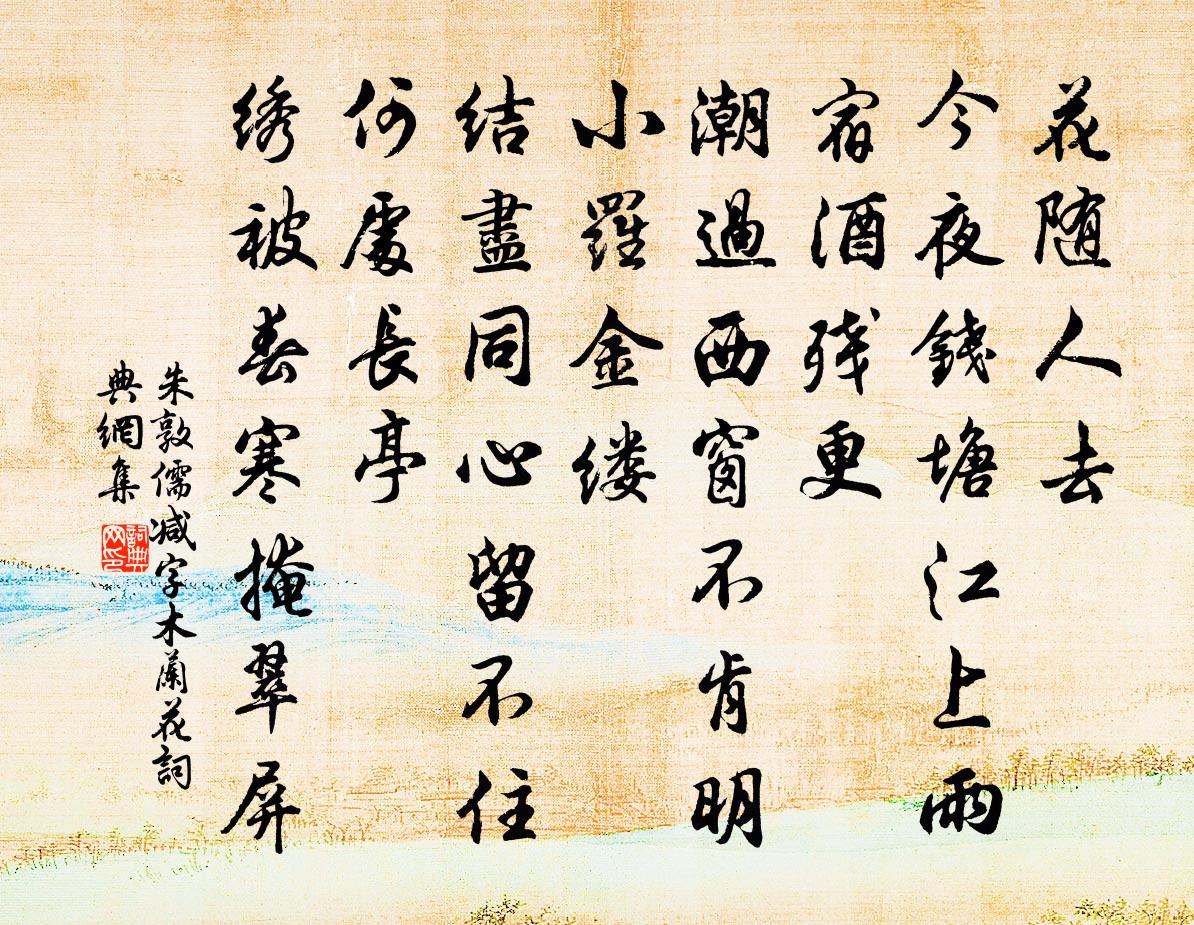 花随人去
今夜錢塘江上雨
宿酒残更
潮過西窗不肯明
小羅金缕
结盡同心留不住
何處長亭
绣被春寒掩翠屏
朱敦儒减字木蘭花詞
典網集
詞典网印